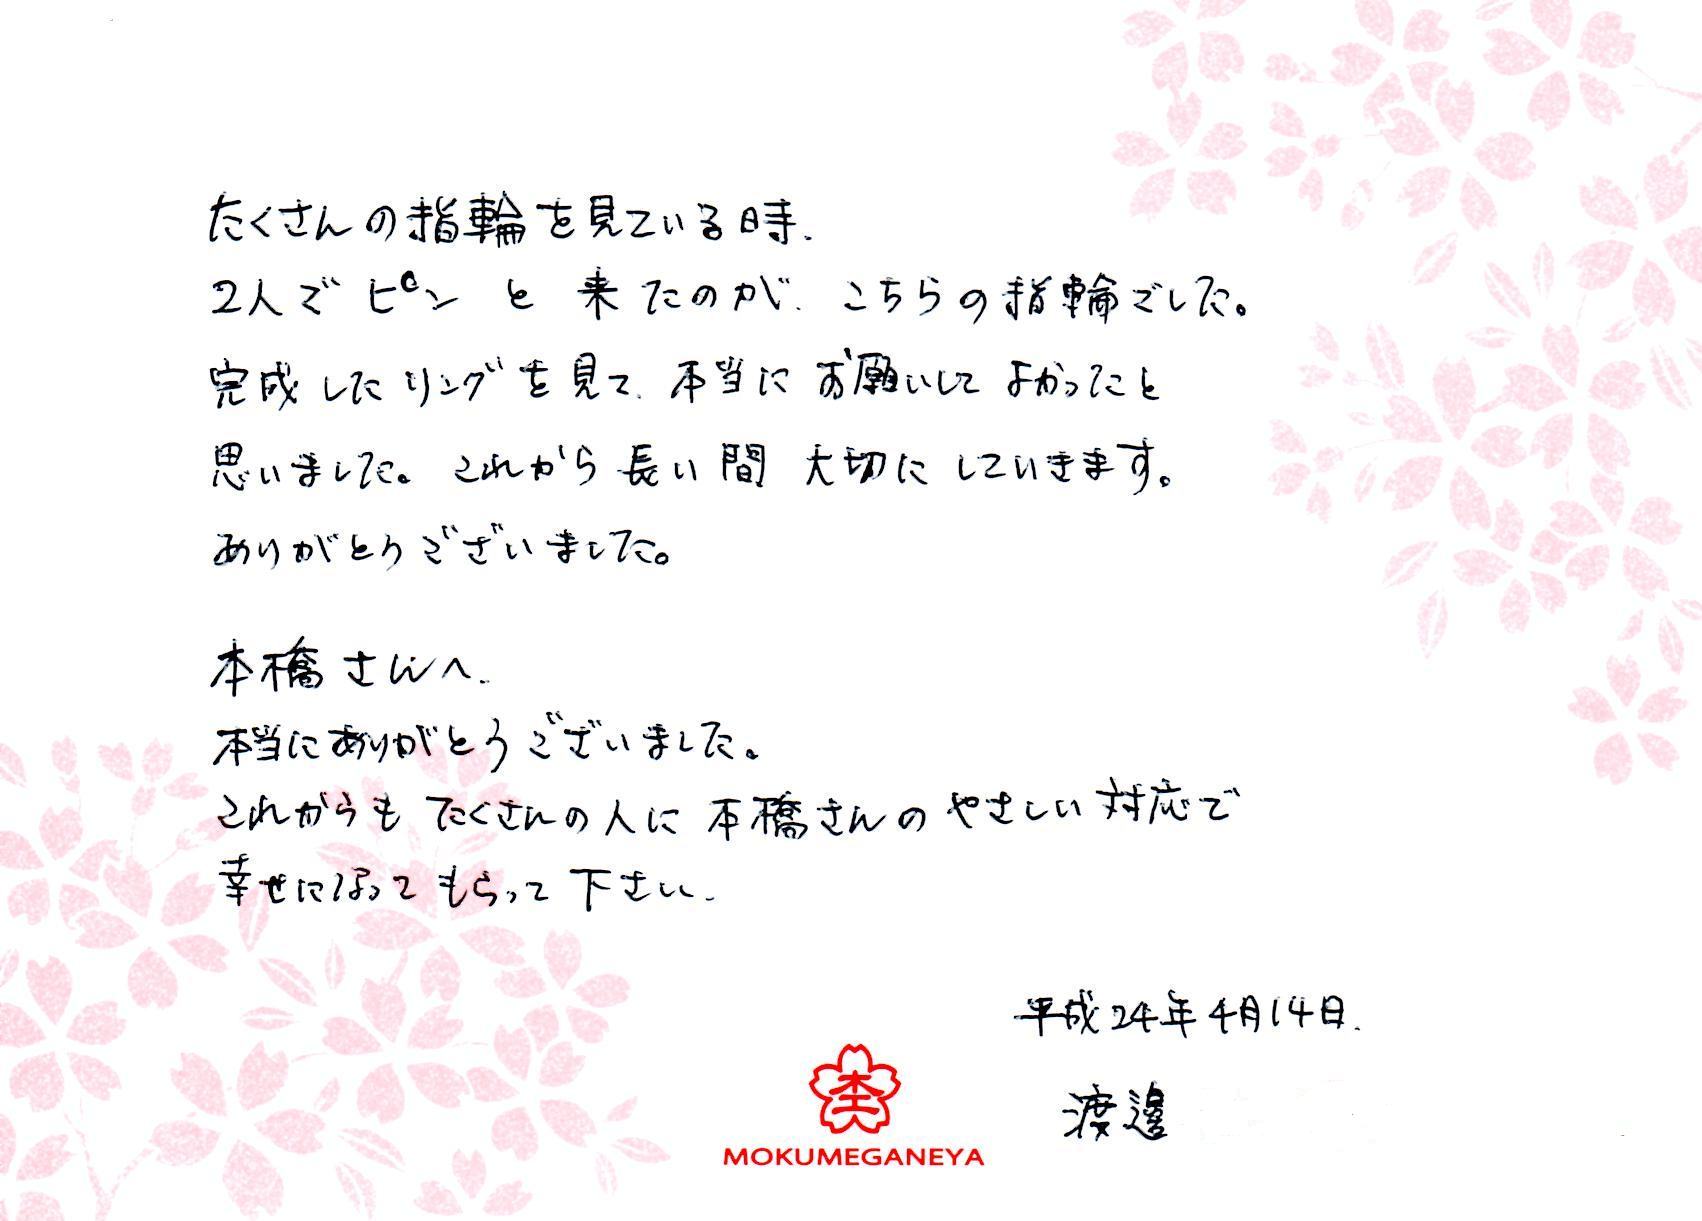 たくさんの指輪を見ている時、
2人でピンと来たのが、こちらの指輪でした。
完成したリングを見て、本当にお願いしてよかったと
思いました。これから長い間大切にしていきます。
ありがとうございました。
本橋さんへ、
本当にありがとうございました。
これからもたくさんの人に本橋さんのやさしい対応で
幸せになってもらって下さい。
平成24年4月14日、
渡邊
MOKUMEGANEYA